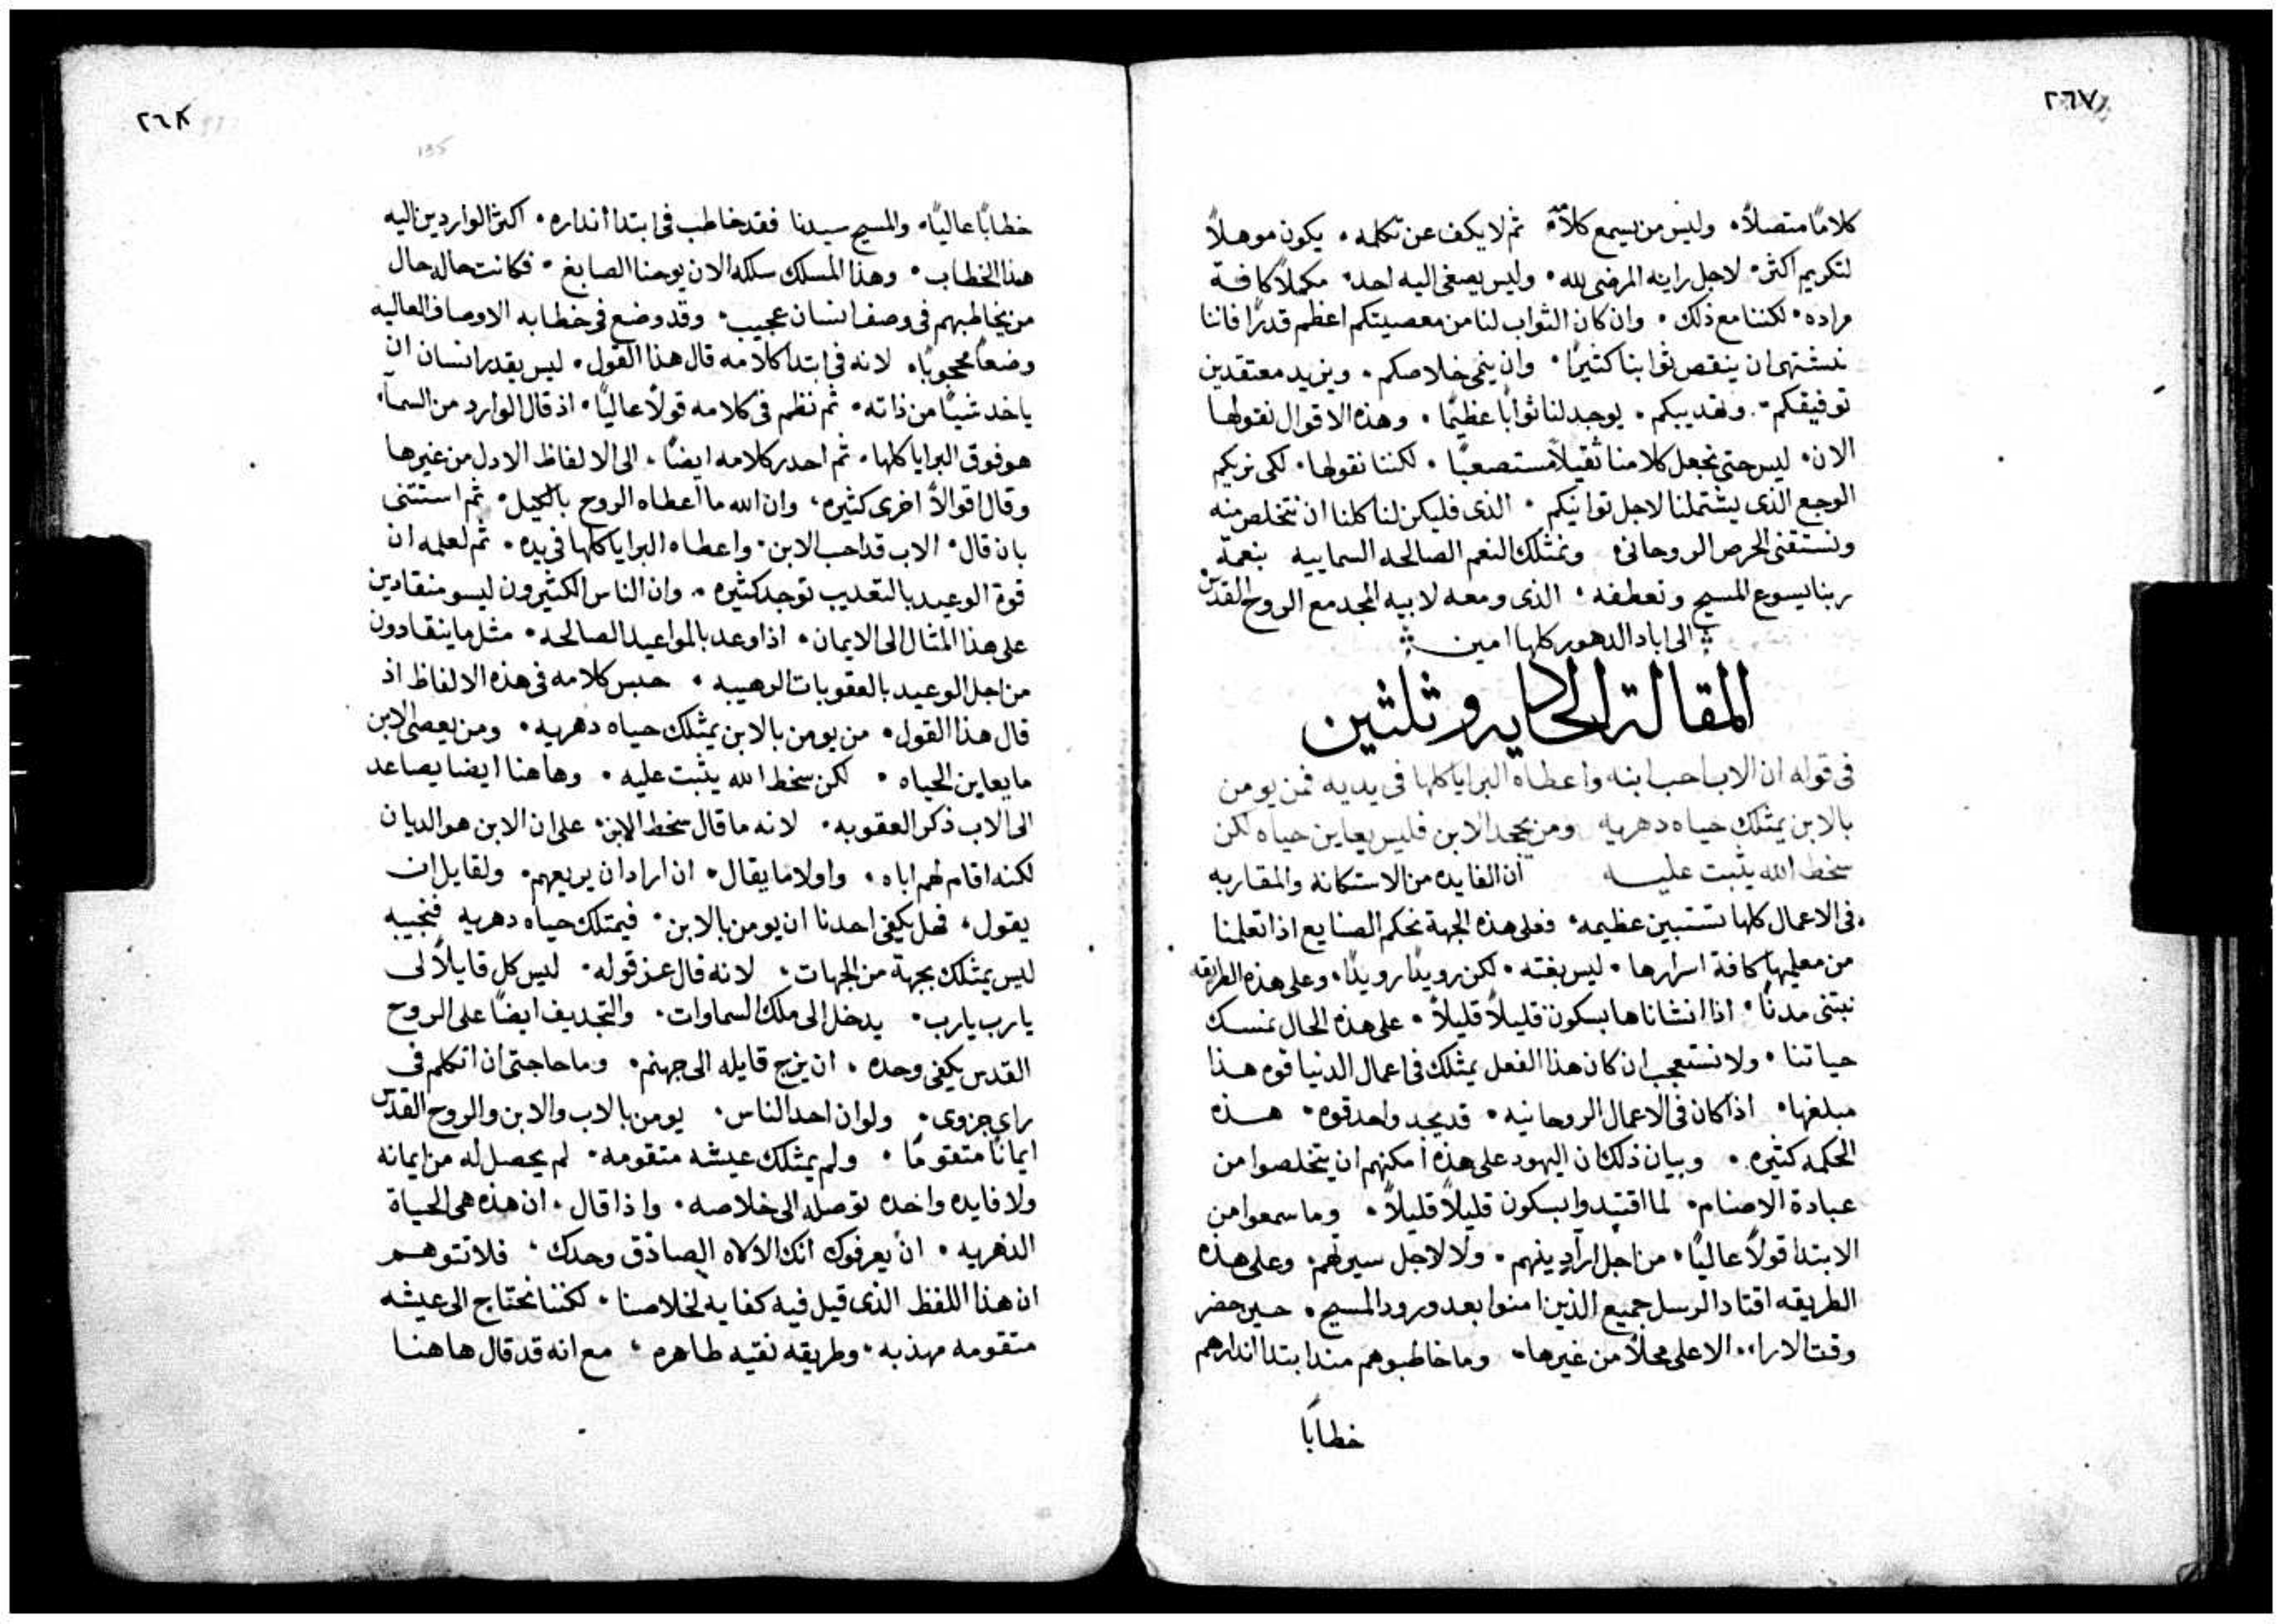 ٢٦٧
كلامًا متصلاً٠ وليس من يسمع كلامه ثم لا يكف عن تكلمه٠ يكون موهلاً
لتكريم اكثر٠ لاجل رايه المرضي لله٠ وليس يصغى اليه احد٠ مكملاً كافة
مراده٠ لكننا مع ذلك٠ وان كان الثواب لنا من معصيتكم اعظم قدرًا فاننا
نشتهى ان ينقص ثوابنا كثيرًا٠ وان ينمي خلاصكم٠ ويزيد معتقدين
توفيقكم٠ وتهديبكم٠ يوجد لنا ثوابًا عظيمًا٠ وهذه الاقوال نقولها
الان٠ ليس حتى نجعل كلامنا ثقيلاً مستصعبًا٠ لكننا نقولها٠ لكى نريكم
الوجع الذى يشتملنا لاجل توانيكم٠ الذى فليكن لنا كلنا ان نتخلص منه
ونستقنى الحرص الروحانى٠ ونمتلك النعم الصالحه السماييه بنعمة
ربنا يسوع المسيح وتعطفه٠ الذى ومعه لابيه المجد مع الروح القدس
الى اباد الدهور كلها امين
المقالة الحاديه وثلثين
فى قوله ان الاب احب ابنه واعطاه البرايا كلها فى يديه فمن يومن
بالابن يمتلك حياه دهريه ومن يجحد الابن فليس يعاين حياه لكن
سخط الله يثبت عليه ان الفايده من الاستكانة والمقاربه
فى الاعمال كلها تستبين عظيمه٠ فعلى هذه الجهة نحكم الصنايع اذا تعلمنا
من معلميها كافة اسرارها٠ ليس بغته٠ لكن رويدًا رويدًا٠ وعلى هذه الطريقه
نبتنى مدنًا٠ اذا انشاناها بسكون قليلاً قليلاً٠ على هذه الحال نمسك
حياتنا٠ ولا نستعجب ان كان هذا الفعل يمتلك فى اعمال الدنيا قوه هذا
مبلغها٠ اذا كان فى الاعمال الروحانيه٠ قد يجد واحد قوه٠ هذه
الحكمه كثيره٠ وبيان ذلك ان اليهود على هذه امكنهم ان يتخلصوا من
عبادة الاصنام٠ لما اقتيدوا بسكون قليلاً قليلاً٠ وما سمعوا من
الابتدا قولاً عاليًا٠ من اجل ارآ دينهم٠ ولا لاجل سيرتهم٠ وعلى هذه
الطريقه اقتاد الرسل جميع الذين امنوا بعد ورود المسيح٠ حين حضر
وقت الارا٠٠ الاعلى محلاً من غيرها٠ وما خاطبوهم منذ ابتدا انذارهم
خطابًا
٢٦٨
135
خطابًا عاليًا٠ والمسيح سيدنا فقد خاطب فى ابتدا انذاره٠ اكثر الواردين اليه
هذا الخطاب٠ وهذا المسلك سلكه الان يوحنا الصابغ٠ فكانت حاله حال
من يخاطبهم فى وصف انسان عجيب٠ وقد وضع فى خطابه الاوصاف العاليه
وضعًا محجوبًا٠ لانه فى ابتدا كلامه قال هذا القول٠ ليس يقدر انسان ان
ياخد شيًا من ذاته٠ ثم نظم فى كلامه قولاً عاليًا٠ اذ قال الوارد من السمآ٠
هو فوق البرايا كلها٠ ثم احدر كلامه ايضًا٠ الى الالفاظ الادل من غيرها
وقال اقوالاً اخرى كثيره٠ وان الله ما اعطاه الروح بالكيل٠ ثم استثنى
بان قال٠ الاب قد احب الابن٠ واعطاه البرايا كلها فى يده٠ ثم لعلمه ان
قوة الوعيد بالتعديب توجد كثيره٠ وان الناس الكثيرون ليسو منقادين
على هذا المثال الى الايمان٠ اذا وعد بالمواعيد الصالحه٠ مثل ما ينقادون
من اجل الوعيد بالعقوبات الرهيبه٠ حبس كلامه فى هذه الالفاظ اذ
قال هذا القول٠ من يومن بالابن يمتلك حياه دهريه٠ ومن يعصى الابن
ما يعاين الحياه٠ لكن سخط الله يثبت عليه٠ وهاهنا ايضا يصاعد
الى الاب ذكر العقوبه٠ لانه ما قال سخط الابن٠ على ان الابن هو الديان
لكنه اقام لهم اباه٠ واولا ما يقال٠ ان اراد ان يريعهم٠ ولقايل ان
يقول٠ فهل يكفى احدنا ان يومن بالابن٠ فيمتلك حياه دهريه فنجيبه
ليس يمتلك بجهة من الجهات٠ لانه قال عز قوله٠ ليس كل قايلاً لى
يارب يارب٠ يدخل الى ملك السماوات٠ والتجديف ايضًا على الروح
القدس يكفى وحده٠ ان يزج قايله الى جهنم٠ وما حاجتى ان اتكلم فى
راى جزوى٠ ولو ان احد الناس٠ يومن بالاب والابن والروح القدس
ايمانًا متقومًا٠ ولم يمتلك عيشه متقومه٠ لم يحصل له من ايمانه
ولا فايده واحده توصله الى خلاصه٠ واذا قال٠ ان هذه هى الحياة
الدهريه٠ ان يعرفوك انك الالاه الصادق وحدك٠ فلا تتوهم
ان هذا اللفظ الذى قيل فيه كفايه لخلاصنا٠ لكننا نحتاج الى عيشه
متقومه مهذبه٠ وطريقه نقيه طاهره٠ مع انه قد قال هاهنا